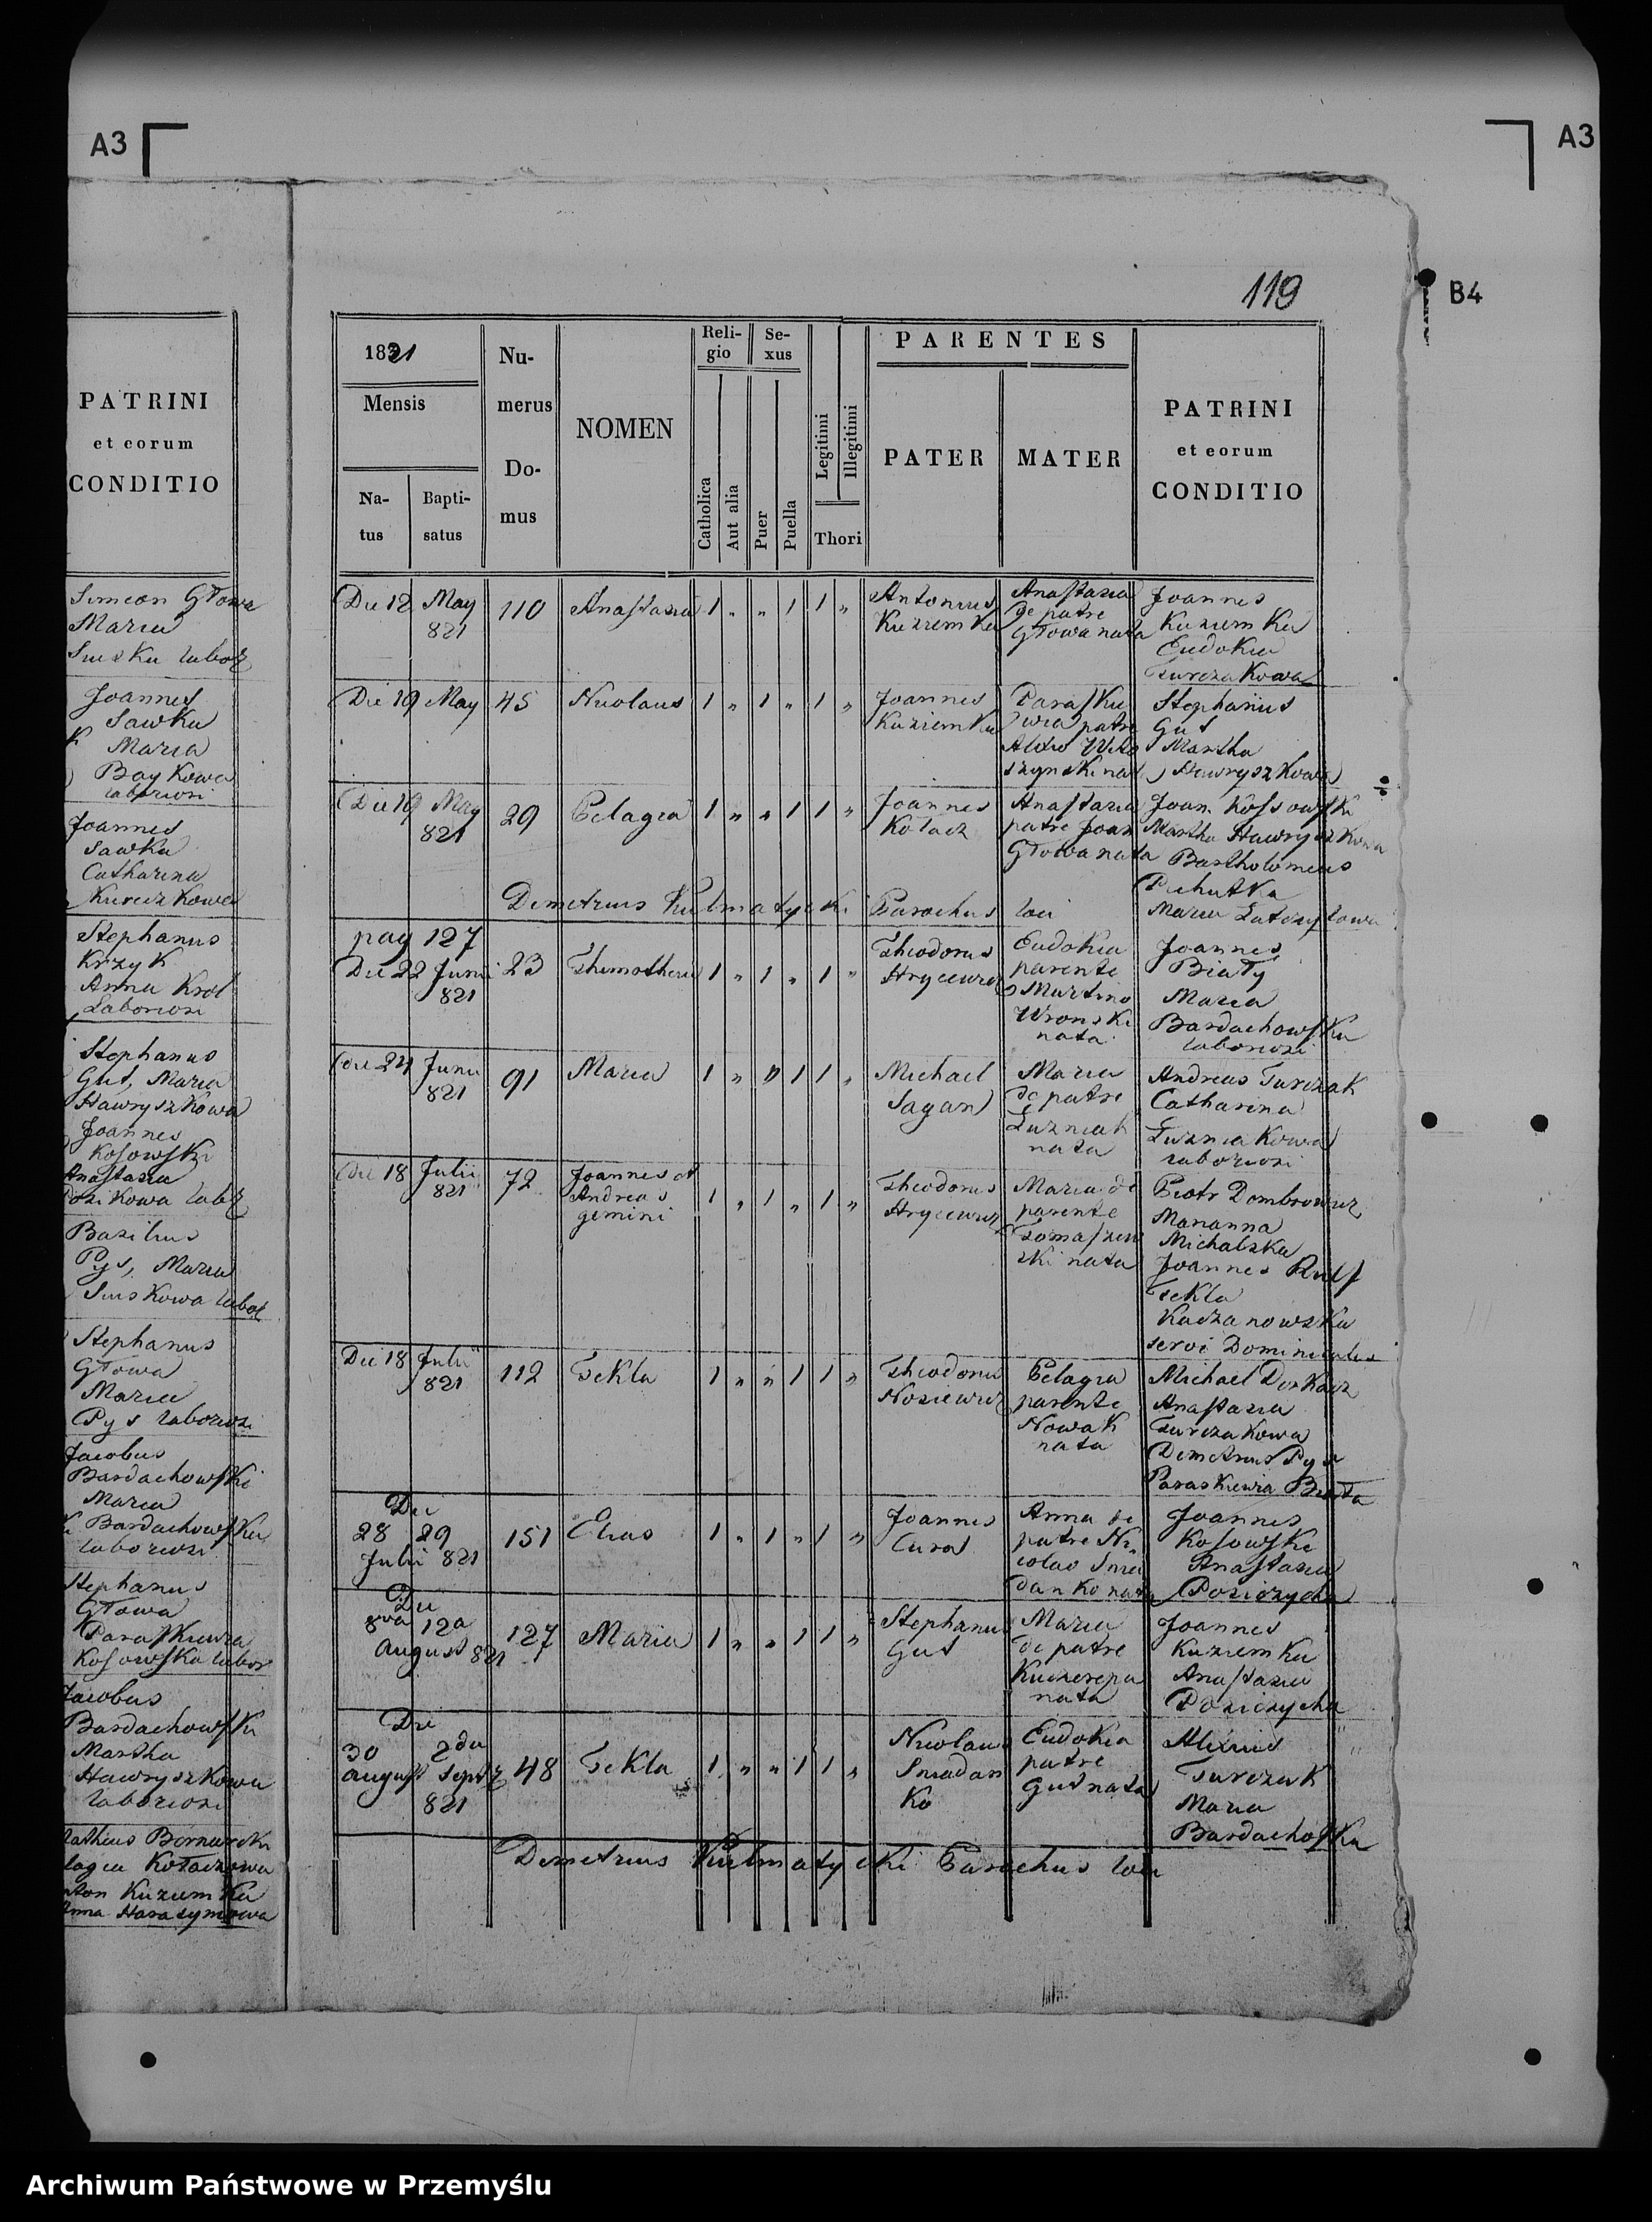 A3
A3
B4
119
PATRINI
et eorum
CONDITIO
Simeon Głowa
Maria
Suska labor
Joannes
Sawka
Maria
Baykowa
laboriosi
Joannes
Sawka
Catharina
Kureczkowa
Stephanus
Krzyk
Anna Krol
Laboriosi
Stephanus
Gut, Maria
Hawryszkowa
Joannes
Kosowski
Anastasia
Basilius
Pys, Maria
Suskowa labor
Stephanus
Głowa
Maria
Pys laboriosi
Jacobus
Bardachowski
Maria
Bardachowska
laboriosi
Stephanus
Głowa
Paraskiewia
Kosowska labor
Jacobus
Bardachowski
Martha
Hawryszkowa
laboriosi
Kołaczowa
Kuziemka
Anna Harasymowa
1821
Mensis
Na-
tus
Bapti-
satus
Nu-
merus
Do-
mus
NOMEN
Reli-
gio
Catholica
Aut alia
Se-
xus
Puer
Puella
Legitimi
Illegitimi
Thori
PARENTES
PATER
MATER
PATRINI
et eorum
CONDITIO
Die 12 May 821 110 Anastasia 1 " " 1 1 "
Antonius
Kuziemka
Anastasia
de patre
Głowa nata
Joannes
Kuziemka
Eudokia
Turczakowa
Die 19 May 45 Nicolaus 1 " 1 " 1 "
Joannes
Kuziemka
Parasku
wia patre
Joannes
Stephanus
Gut
Martha
Hawryszkowa
Die 19 May 821 29 Pelagia 1 " " 1 1 "
Joannes
Kołacz
Anastasia
patre Joan
Głowa nata
Joan Kossowski
Martha Hawryszkowa
Bartholomeus
Demetrius Kulmatycki Parochus loci
pag 127
Die 22 Junii 821 23 Thimotheus 1 " 1 " 1 "
Theodorus
Hrycewicz
Eudokia
parente
Martino
Wronski
nata
Joannes
Biały
Maria
Bardachowska
laboriosi
Die 24 Junii 821 91 Maria 1 " " 1 1 "
Michael
Sagan
Maria
de patre
Luzniak
nata
Andreas Turczak
Catharina
Luzniakowa
laboriosi
Die 18 Julii 821 72 Joannes et
Andreas
gemini 1 " 1 " 1 "
Theodorus
Hrycewicz
Maria de
parente
Tomaszew
ski nata
Piotr Dombrowicz
Marianna
Michalska
Joannes Rulf
Tekla
Kaczanowska
servi Dominicales
Die 18 Julii 821 112 Tekla 1 " " 1 1 "
Theodorus
Nosiewicz
Pelagia
parente
Nowak
nata
Michael Derkacz
Anastasia
Turczakowa
Demetrius Pys
Paraskiewia
Die
28 29
Julii 821 151 Elias 1 " 1 " 1 "
Joannes
Cura
Anna de
patre Ni
colao Snia
danko nata
Joannes
Kosowski
Anastasia
Die
8va 12a
August 821 127 Maria 1 " " 1 1 "
Stephanus
Gut
Maria
de patre
nata
Joannes
Kuziemka
Anastasia
Die
30 2da
August Septb
821 48 Tekla 1 " " 1 1 "
Nicolaus
Sniadan
ko
Eudokia
patre
Gut nata
Alexius
Turczak
Maria
Bardachoska
Demetrius Kulmatycki Parochus loci
Archiwum Państwowe w Przemyślu